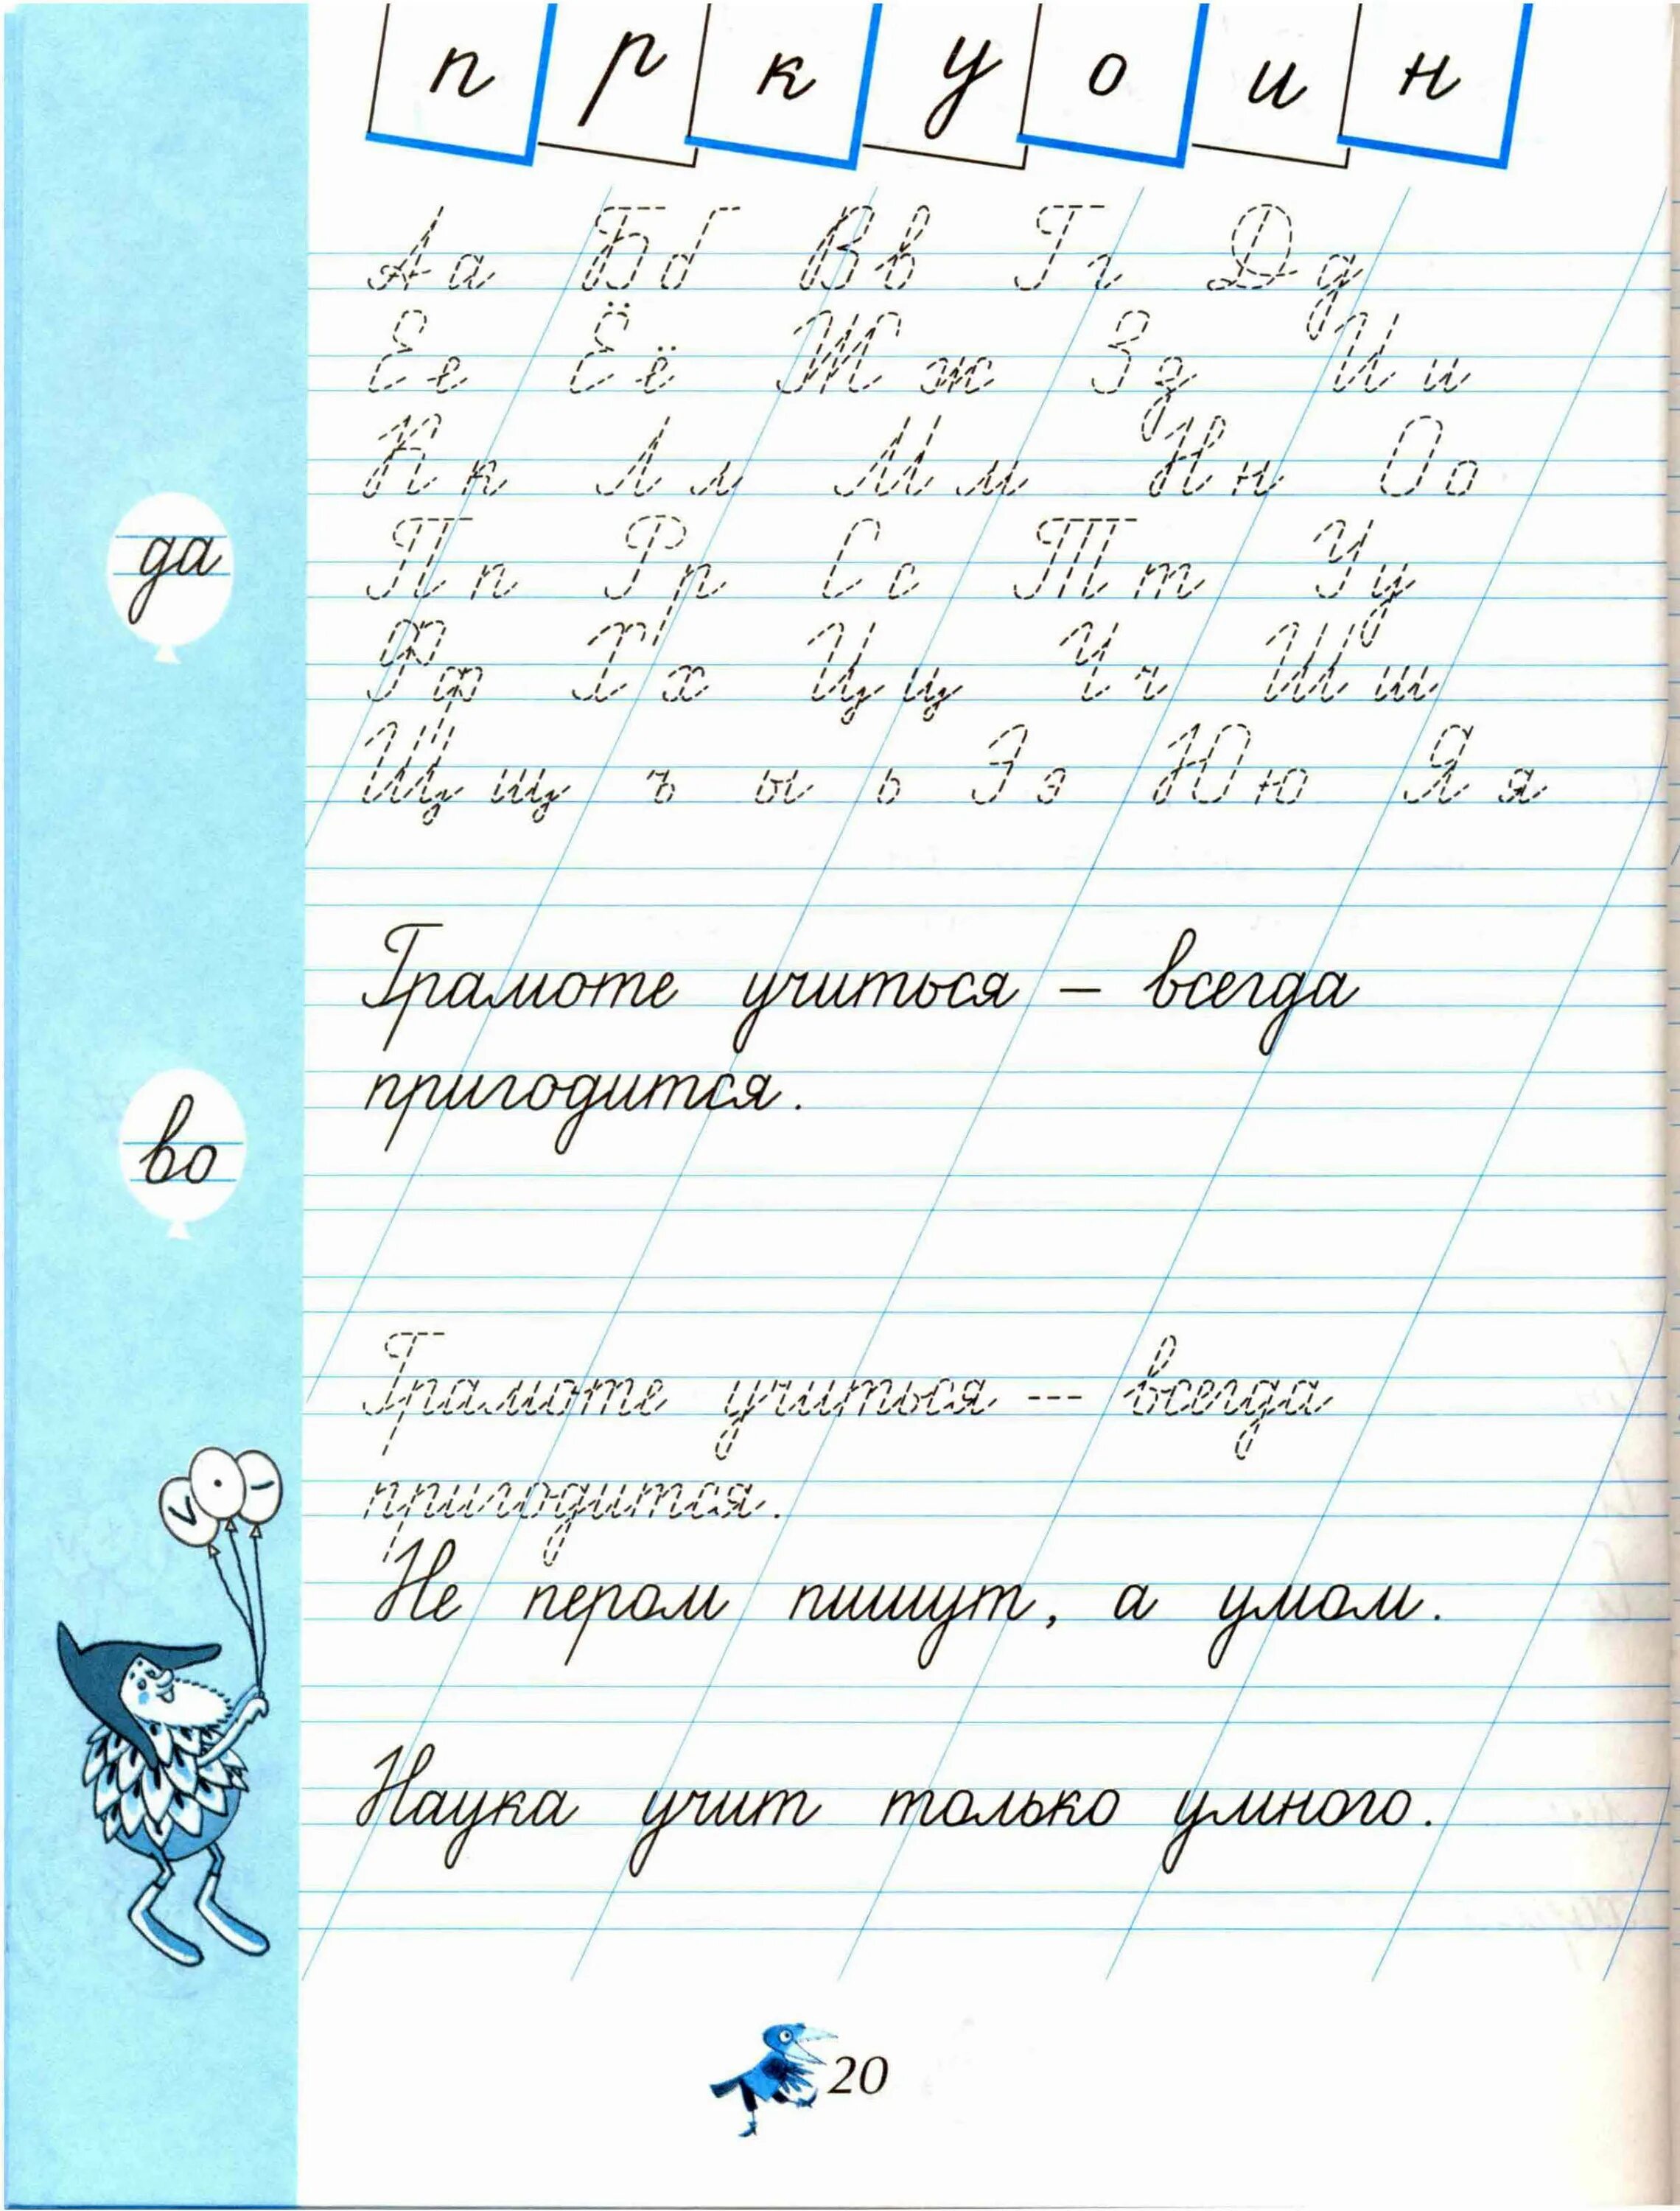 п р к у о и н
Аа Бб Вв Гг Дд
Ее Ёё Жж Зз Ии
Кк Лл Мм Нн Оо
Пп Рр Сс Тт Уу
Фф Хх Цц Чч Шш
Щщ ъ ы ь Ээ Юю Яя
да
Грамоте учиться – всегда
пригодится.
во
Грамоте учиться – всегда
пригодится.
Не пером пишут, а умом.
Наука учит только умного.
20